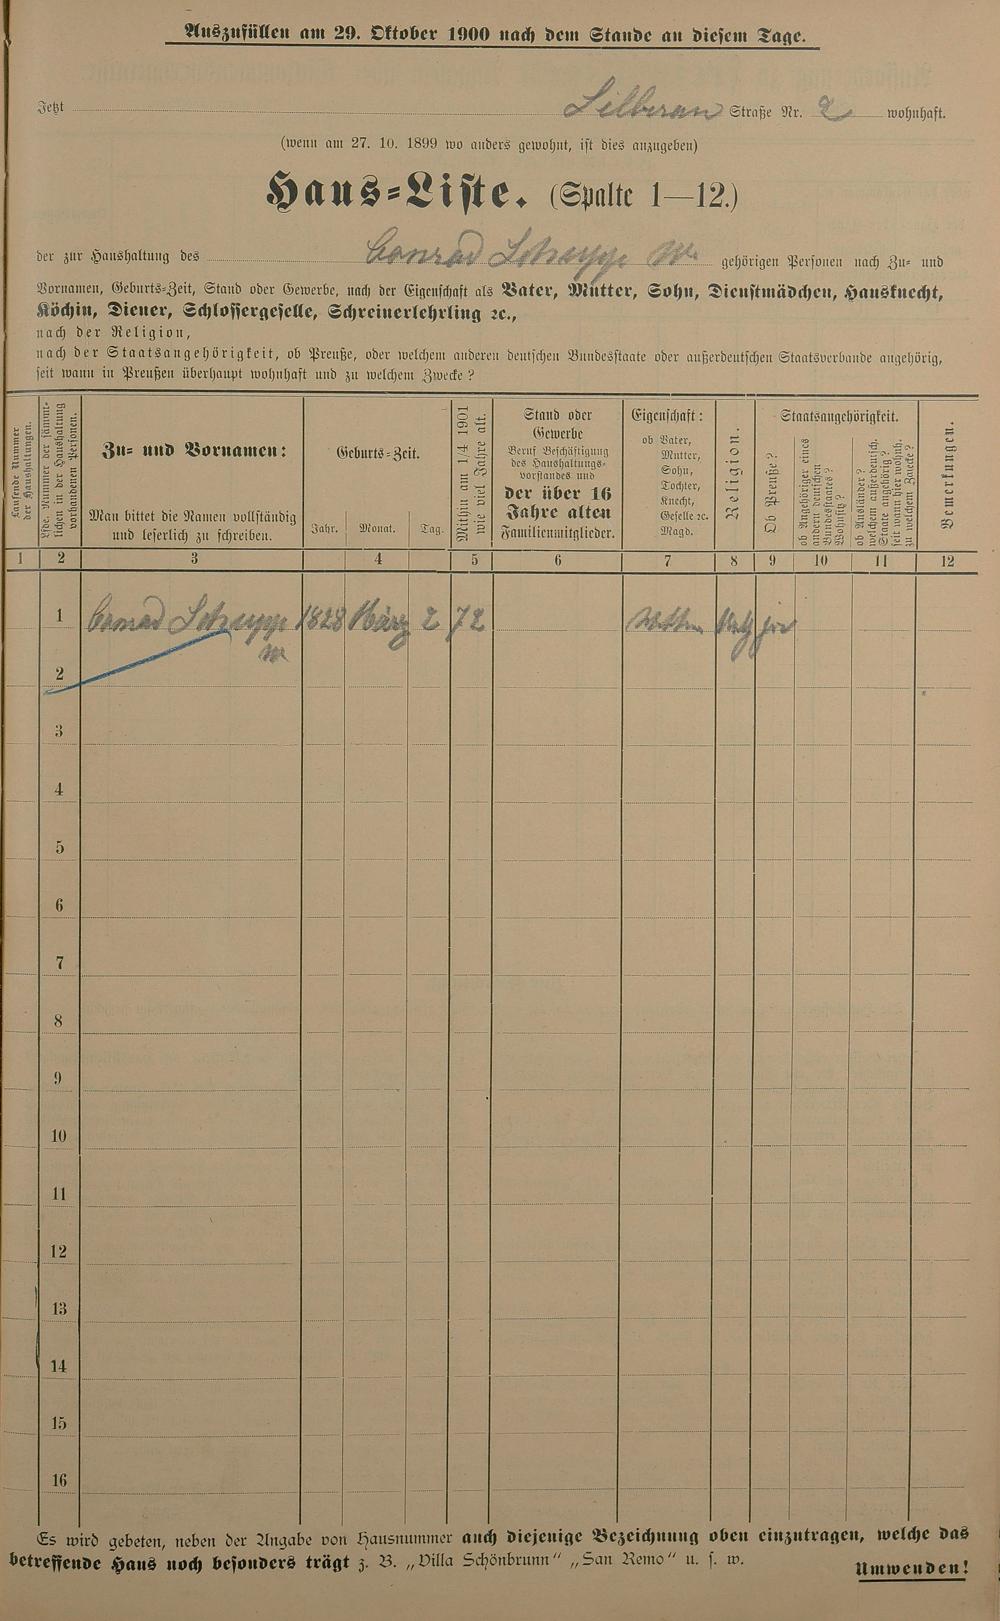 Auszufüllen am 29. Oktober 1900 nach dem Stande an diesem Tage.
Jetzt Silberau Straße Nr. 2 wohnhaft.
(wenn am 27. 10. 1899 wo anders gewohnt, ist dies anzugeben)
Haus=Liste. (Spalte 1—12.)
der zur Haushaltung des Conrad Schupp W. gehörigen Personen nach Zu= und
Vornamen, Geburts=Zeit, Stand oder Gewerbe, nach der Eigenschaft als Vater, Mutter, Sohn, Dienstmädchen, Hausknecht,
Köchin, Diener, Schlossergeselle, Schreinerlehrling ꝛc.,
nach der Religion,
nach der Staatsangehörigkeit, ob Preuße, oder welchem anderen deutschen Bundesstaate oder außerdeutschen Staatsverbande angehörig,
seit wann in Preußen überhaupt wohnhaft und zu welchem Zwecke?
Laufende Nummer
der Haushaltungen.
Lfde. Nummer der sämmt-
lichen in der Haushaltung
vorhandenen Personen.
Zu= und Vornamen:
Man bittet die Namen vollständig
und leserlich zu schreiben.
Geburts=Zeit.
Jahr. Monat. Tag.
Mithin am 1/4 1901
wie viel Jahre alt.
Stand oder
Gewerbe
Beruf Beschäftigung
des Haushaltungs-
vorstandes und
der über 16
Jahre alten
Familienmitglieder.
Eigenschaft:
ob Vater,
Mutter,
Sohn,
Tochter,
Knecht,
Geselle ꝛc.
Magd.
Religion.
Staatsangehörigkeit.
Ob Preuße?
ob Angehöriger eines
andern deutschen
Bundesstaates?
Wohnsitz?
ob Ausländer?
welchem außerdeutsch.
Staate angehörig?
seit wann hier wohnh.
zu welchem Zwecke?
Bemerkungen.
1 2 3 4 5 6 7 8 9 10 11 12
1 Conrad Schupp 1828 März 2 72
W
2
3
4
5
6
7
8
9
10
11
12
13
14
15
16
Es wird gebeten, neben der Angabe von Hausnummer auch diejenige Bezeichnung oben einzutragen, welche das
betreffende Haus noch besonders trägt z. B. „Villa Schönbrunn" „San Remo" u. s. w.
Umwenden!